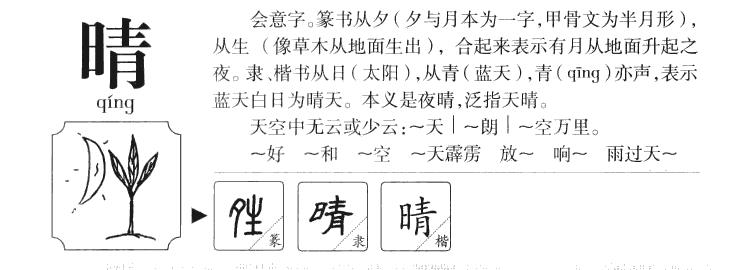 晴
qíng
会意字。篆书从夕(夕与月本为一字,甲骨文为半月形),
从生(像草木从地面生出),合起来表示有月从地面升起之
夜。隶、楷书从日(太阳),从青(蓝天),青(qīng)亦声,表示
蓝天白日为晴天。本义是夜晴,泛指天晴。
天空中无云或少云:～天|～朗|～空万里。
～好 ～和 ～空 ～天霹雳 放～ 响～ 雨过天～
篆
晴 隶
晴 楷